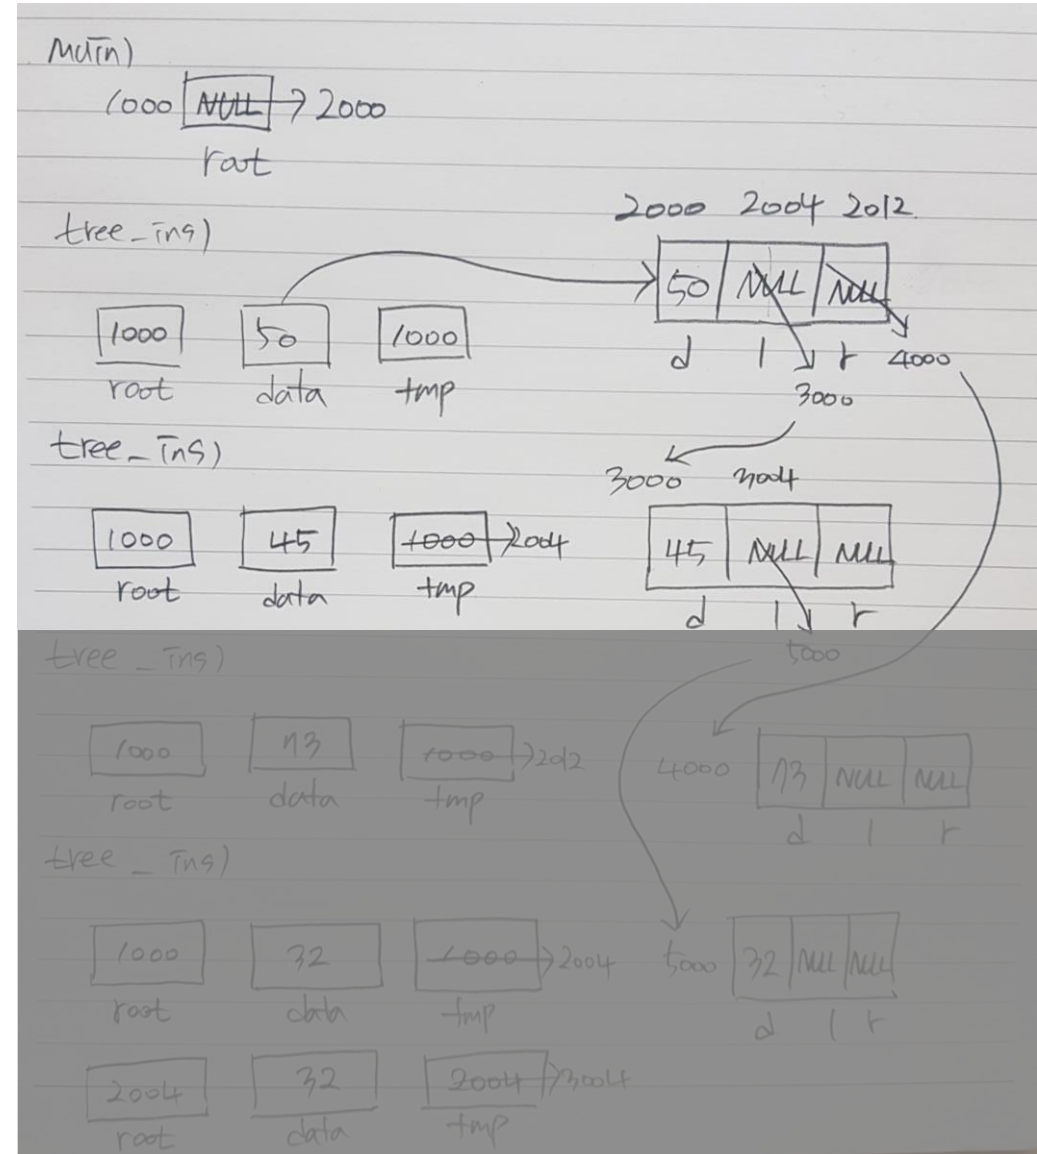 main)
1000 NULL → 2000
root
2000 2004 2012
tree_ins)
50 NULL NULL
1000 50 1000
d l r 4000
root data tmp
3000
tree_ins)
3000 3004
1000 45 1000 → 2004
45 NULL NULL
root data tmp
d l r
tree_ins)
5000
1000 73 1000 → 2012
4000 73 NULL NULL
root data tmp
d l r
tree_ins)
1000 32 1000 → 2004
5000 32 NULL NULL
root data tmp
d l r
2004 32 2004 → 3004
root data tmp